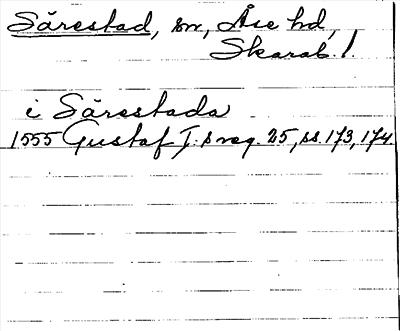 Särestad, sn, Åse hd,
Skarab. l.
i Särestada
1555 Gustaf I:s reg. 25, ss. 173, 174.